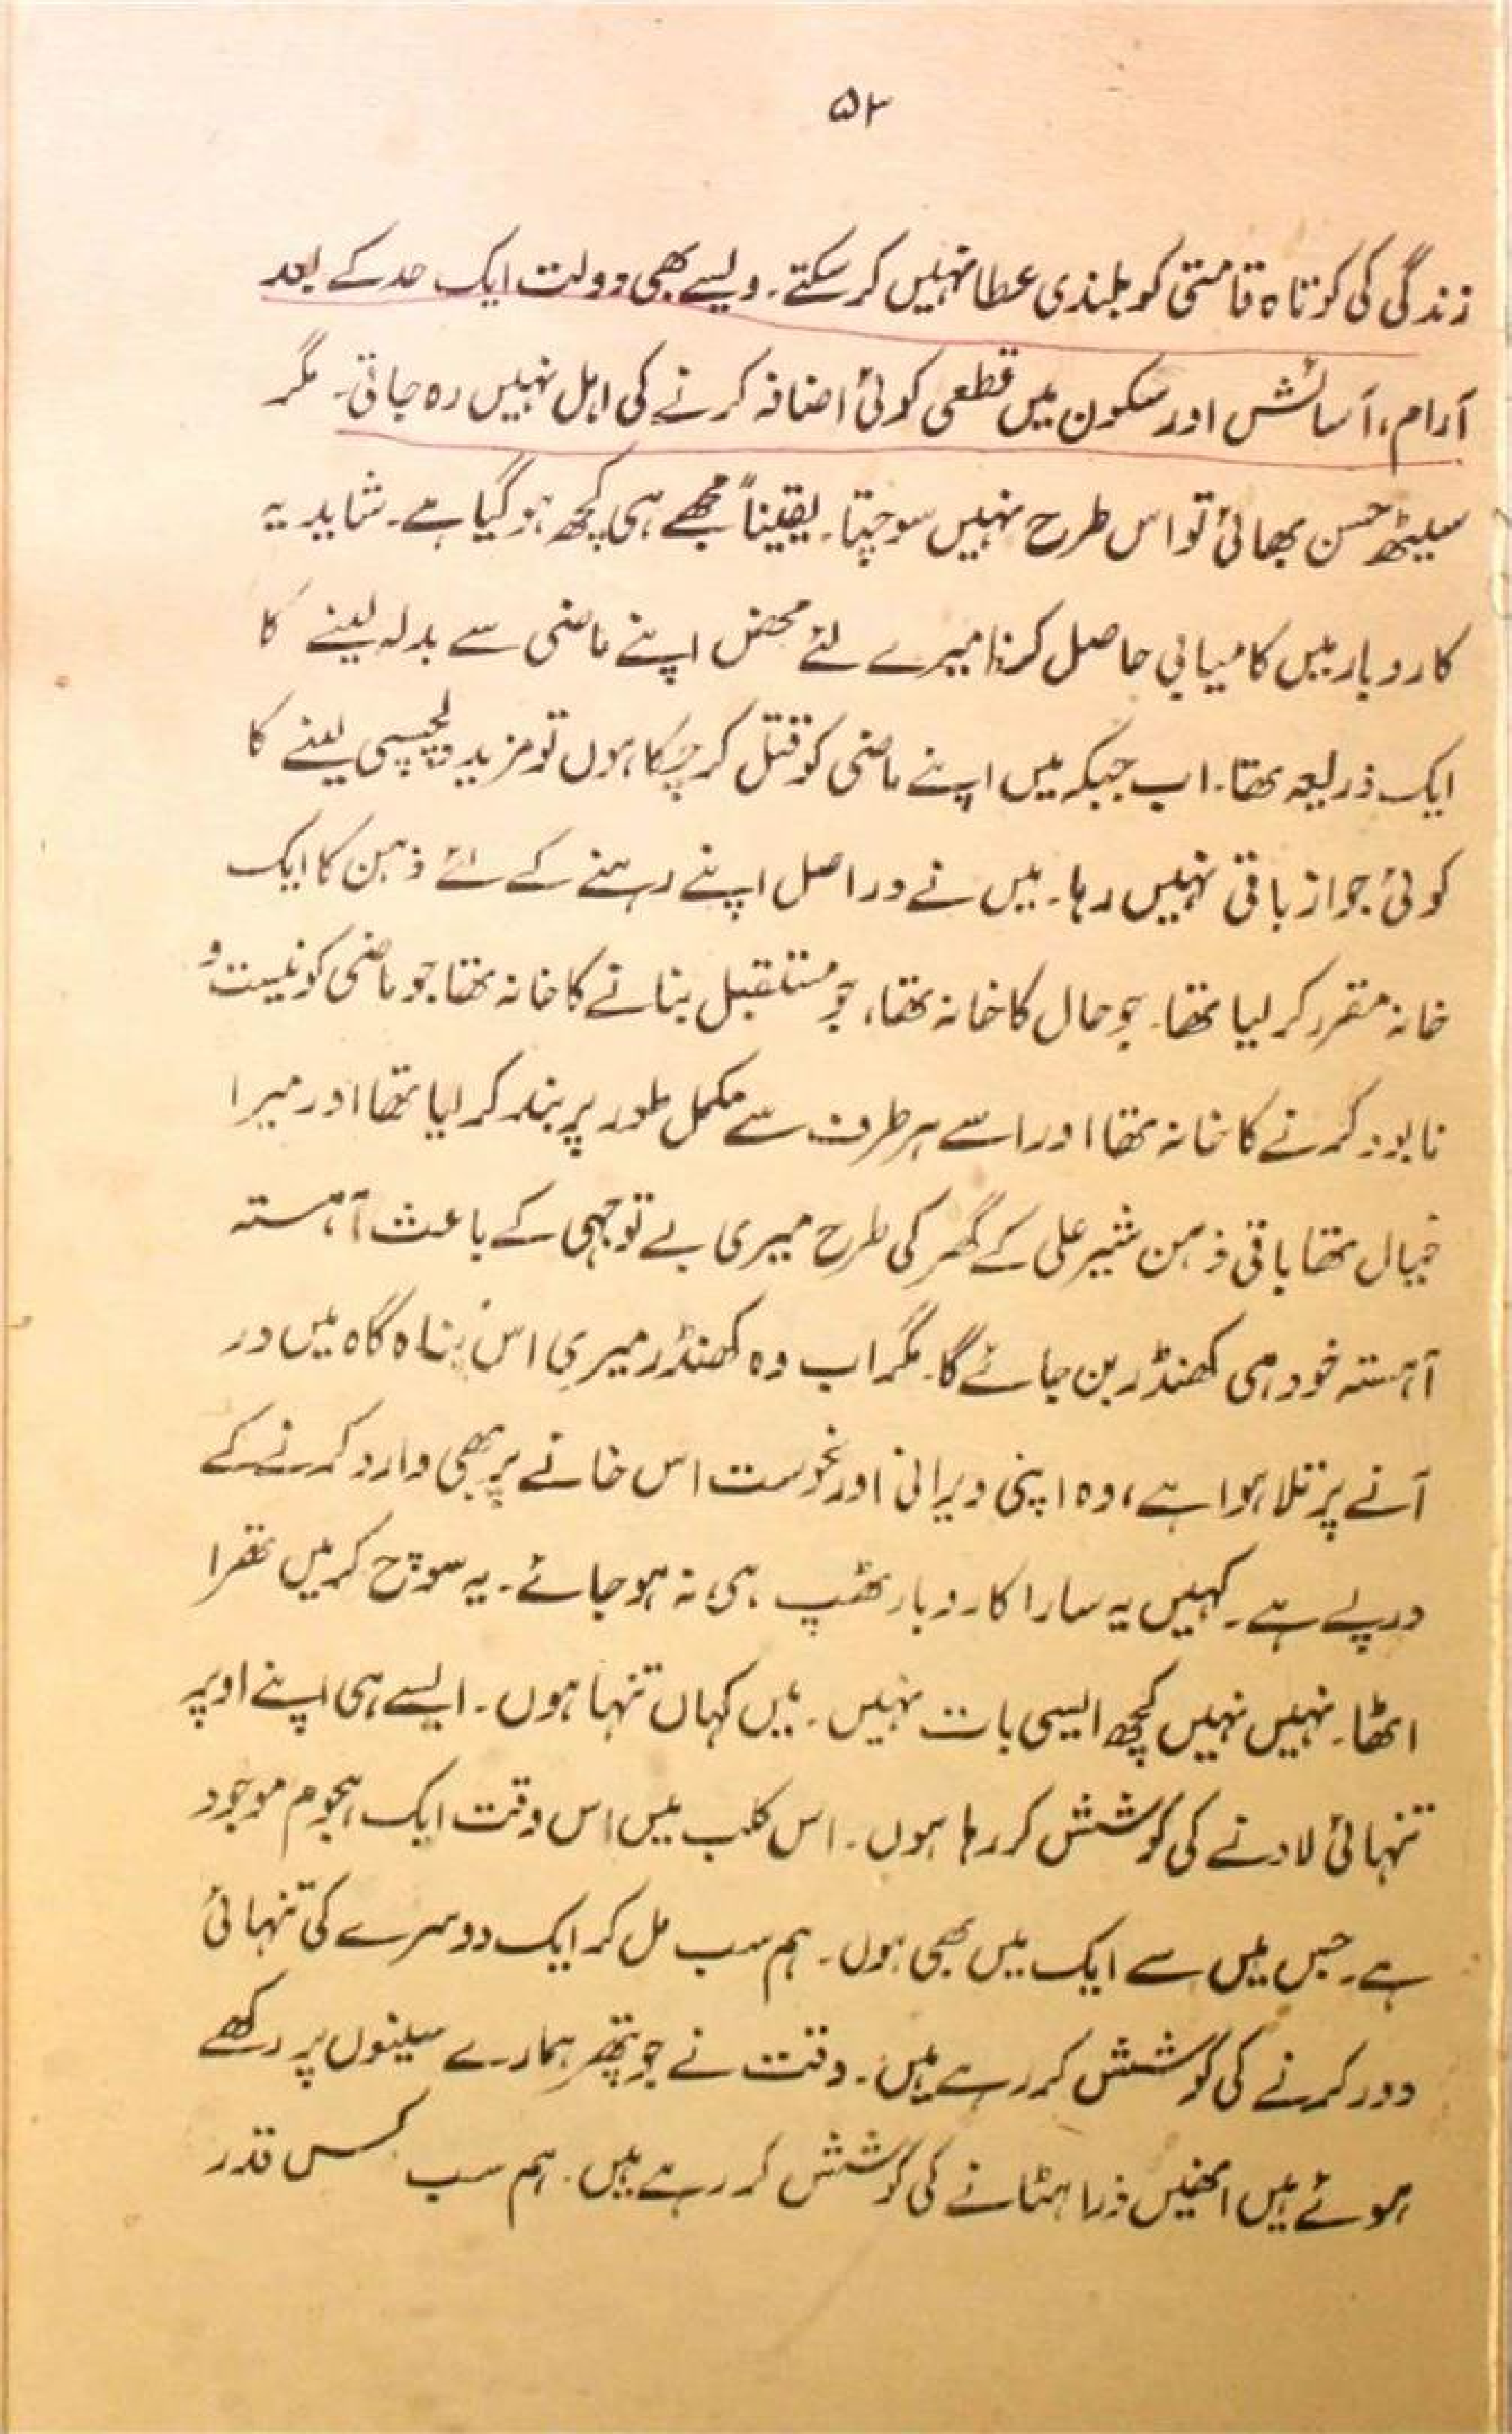 ۵۲
زندگی کی کوتاہ قامتی کو بلندی عطا نہیں کر سکتے۔ ویسے بھی دولت ایک حد کے بعد
آرام، آسائش اور سکون میں قطعی کوئی اضافہ کرنے کی اہل نہیں رہ جاتی۔ مگر
سیٹھ حسن بھائی تو اس طرح نہیں سوچتا۔ یقیناً مجھے ہی کچھ ہو گیا ہے۔ شاید یہ
کاروبار میں کامیابی حاصل کرنا میرے لئے محض اپنے ماضی سے بدلہ لینے کا
ایک ذریعہ تھا۔ اب جبکہ میں اپنے ماضی کو قتل کر چکا ہوں تو مزید دلچسپی لینے کا
کوئی جواز باقی نہیں رہا۔ میں نے دراصل اپنے رہنے کے لئے ذہن کا ایک
خانہ مقرر کر لیا تھا۔ جو حال کا خانہ تھا، جو مستقبل بنانے کا خانہ تھا جو ماضی کو نیست و
نابود کرنے کا خانہ تھا اور اسے ہر طرف سے مکمل طور پر بند کر لیا تھا اور میرا
خیال تھا باقی ذہن شیر علی کے گھر کی طرح میری بے توجہی کے باعث آہستہ
آہستہ خود ہی کھنڈر بن جائے گا۔ مگر اب وہ کھنڈر میری اس پناہ گاہ میں در
آنے پر تلا ہوا ہے، وہ اپنی ویرانی اور نحوست اس خانے پر بھی وارد کرنے کے
درپے ہے۔ کہیں یہ سارا کاروبار ٹھپ ہی نہ ہو جائے۔ یہ سوچ کر میں تھرا
اٹھا۔ نہیں نہیں کچھ ایسی بات نہیں۔ میں کہاں تنہا ہوں۔ ایسے ہی اپنے اوپر
تنہائی لادنے کی کوشش کر رہا ہوں۔ اس کلب میں اس وقت ایک ہجوم موجود
ہے۔ جس میں سے ایک میں بھی ہوں۔ ہم سب مل کر ایک دوسرے کی تنہائی
دور کرنے کی کوشش کر رہے ہیں۔ وقت نے جو پتھر ہمارے سینوں پر رکھے
ہوئے ہیں انھیں ذرا ہٹانے کی کوشش کر رہے ہیں۔ ہم سب کس قدر